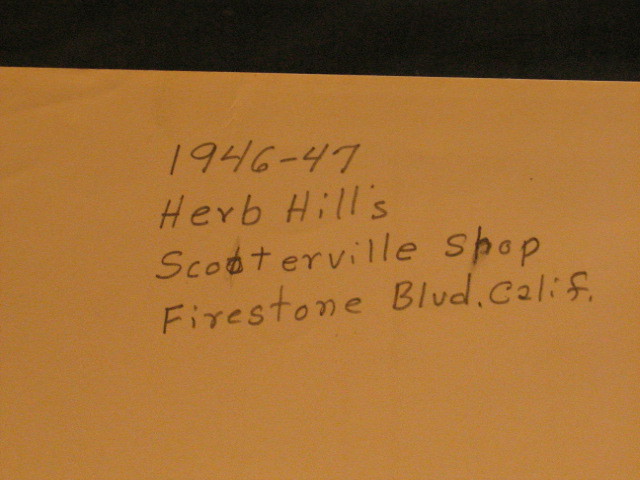 1946-47
Herb Hill's
Scooterville Shop
Firestone Blvd. Calif.